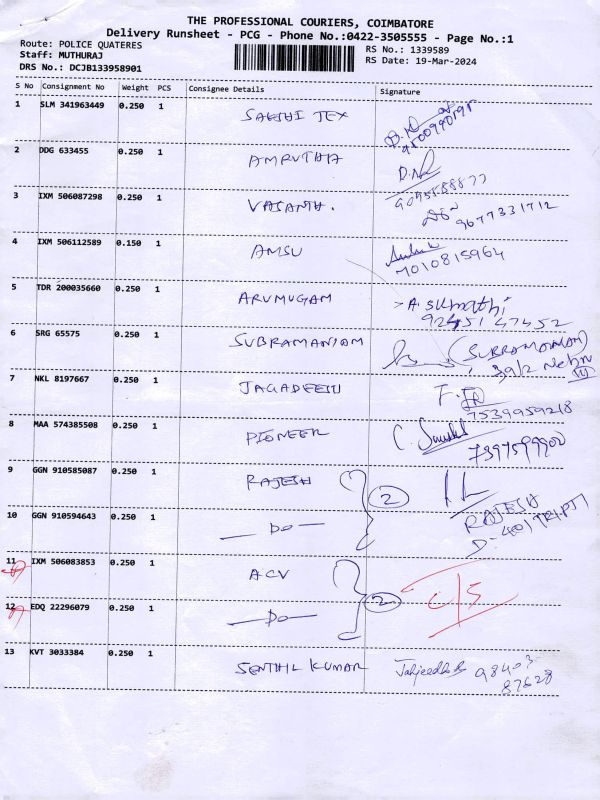 THE PROFESSIONAL COURIERS, COIMBATORE
Delivery Runsheet - PCG - Phone No.:0422-3505555 - Page No.:1
Route: POLICE QUATERES RS No.: 1339589
Staff: MUTHURAJ RS Date: 19-Mar-2024
DRS No.: DCJB133958901
S No Consignment No Weight PCS Consignee Details Signature
1 SLM 341963449 0.250 1 SAKTHI TEX
2 DDG 633455 0.250 1 AMRUTHA
3 IXM 506087298 0.250 1 VASANTH. 9677331712
4 IXM 506112589 0.150 1 AMSU 7010815964
5 TDR 200035660 0.250 1 ARUMUGAM A. Sumathi
92451 47452
6 SRG 65575 0.250 1 SUBRAMANIAM (SUBRAMANIAM)
39/2 Nehru
7 NKL 8197667 0.250 1 JAGADEESH
7539959218
8 MAA 574385508 0.250 1 PIONEER
9 GGN 910585087 0.250 1 RAJESH 2 RAJESH
10 GGN 910594643 0.250 1 — Do — D-401 TRIPTI
11 IXM 506083853 0.250 1 ACV 2 C/S
12 EDQ 22296079 0.250 1 — Do —
13 KVT 3033384 0.250 1 SENTHIL KUMAR 98403
87628